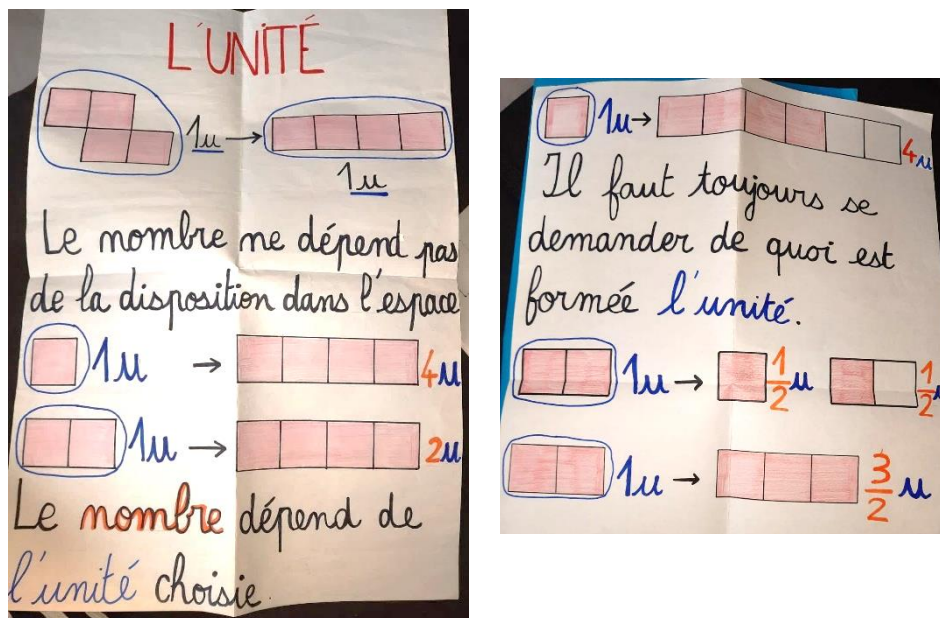 L'UNITÉ
1u
1u
Le nombre ne dépend pas
de la disposition dans l'espace
1u → 4u
1u → 2u
Le nombre dépend de
l'unité choisie.
1u → 4u
Il faut toujours se
demander de quoi est
formée l'unité.
1u → 1/2 u 1/2 u
1u → 3/2 u